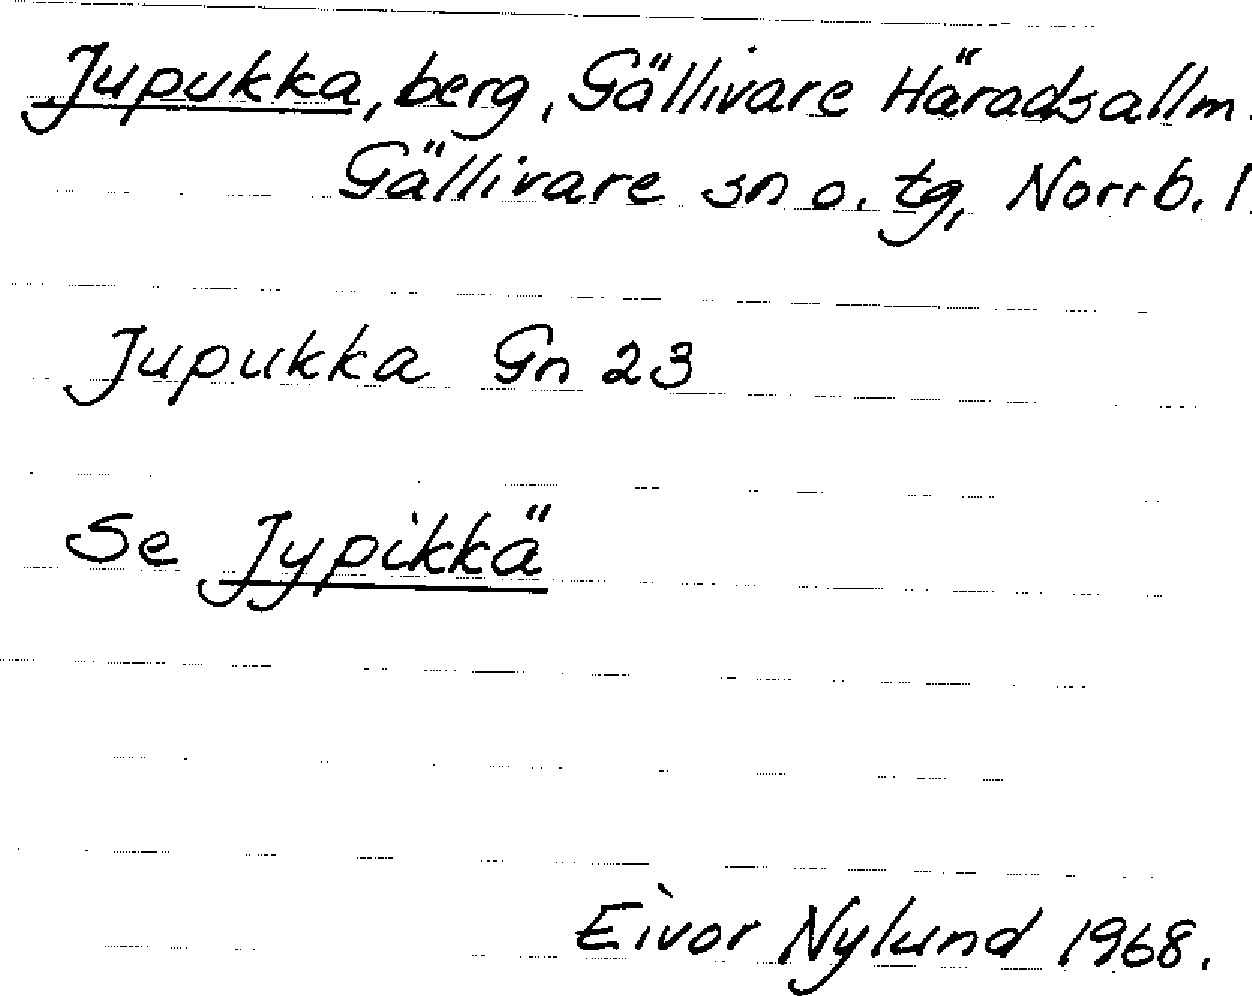 Jupukka, berg, Gällivare Häradsallm.
Gällivare sn o. tg, Norrb. l.
Jupukka Gn 23
Se Jypikkä
Eivor Nylund 1968.